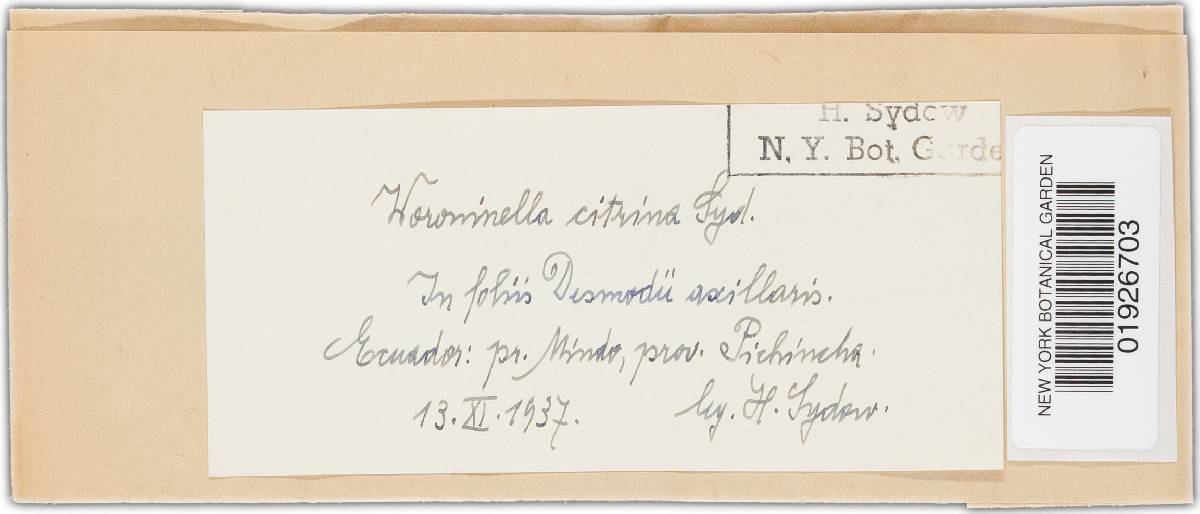 H. Sydow
N. Y. Bot. Garde
Woroninella citrina Syd.
In foliis Desmodii axillaris.
Ecuador: pr. Mindo, prov. Pichincha.
13.XI.1937. leg. H. Sydow.
NEW YORK BOTANICAL GARDEN
01926703